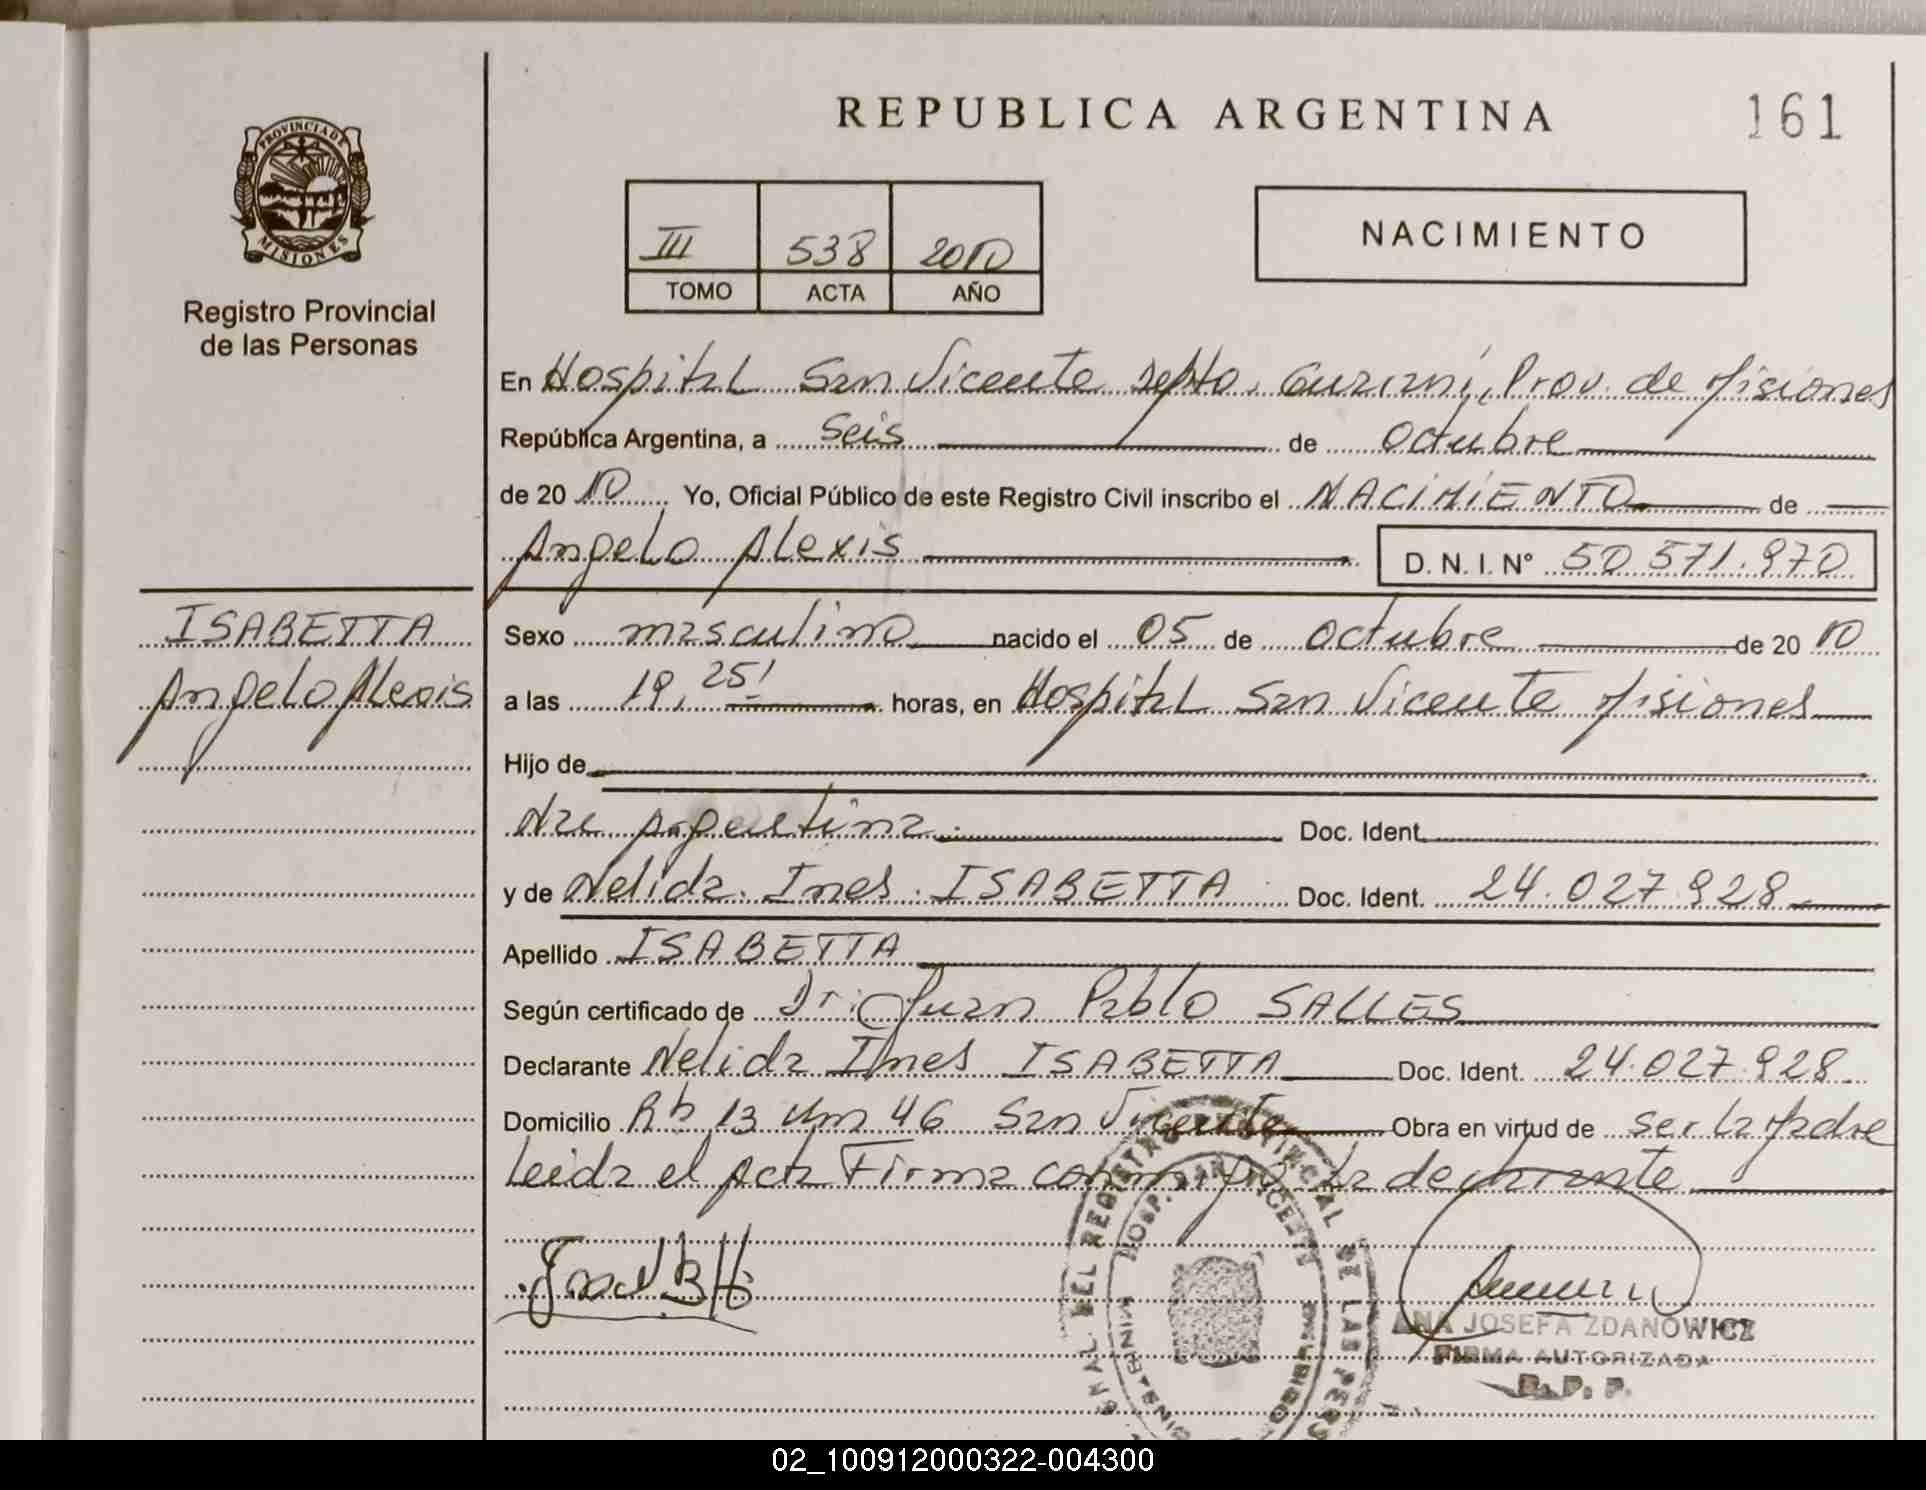 REPUBLICA ARGENTINA
161
PROVINCIA DE
MISIONES
Registro Provincial
de las Personas
III 538 2010
TOMO ACTA AÑO
NACIMIENTO
En Hospital San Vicente Depto. Guaraní, Prov. de Misiones
República Argentina, a Seis de Octubre
de 2010 Yo, Oficial Público de este Registro Civil inscribo el NACIMIENTO de
Angelo Alexis D. N. I. N° 50 571.970
ISABETTA
Angelo Alexis
Sexo masculino nacido el 05 de Octubre de 2010
a las 19, 25' horas, en Hospital San Vicente Misiones
Hijo de
Nac Argentina. Doc. Ident.
y de Nelida Ines ISABETTA Doc. Ident. 24.027.928
Apellido ISABETTA
Según certificado de Dr: Juan Pablo SALLES
Declarante Nelida Ines ISABETTA Doc. Ident. 24.027.928
Domicilio 13 Km 46 San Vicente Obra en virtud de ser la Madre
Leida el Acta Firma conmigo la declarante
REGISTRO PROVINCIAL DE LAS
HOSP. SAN VICENTE
ANA JOSEFA ZDANOWICZ
FIRMA AUTORIZADA
R. P. P.
02_100912000322-004300